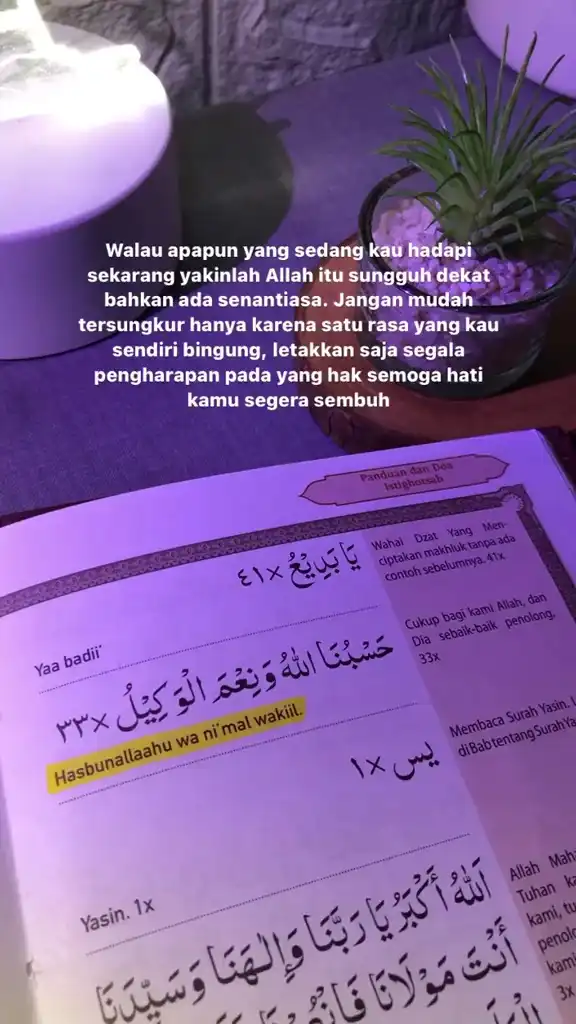 Walau apapun yang sedang kau hadapi
sekarang yakinlah Allah itu sungguh dekat
bahkan ada senantiasa. Jangan mudah
tersungkur hanya karena satu rasa yang kau
sendiri bingung, letakkan saja segala
pengharapan pada yang hak semoga hati
kamu segera sembuh
Panduan dan Doa
Istighotsah
يَا بَدِيْعُ ×٤١
Wahai Dzat Yang Men-
ciptakan makhluk tanpa ada
contoh sebelumnya. 41x
Yaa badii'
حَسْبُنَا اللهُ وَنِعْمَ الْوَكِيْلُ ×٣٣
Cukup bagi kami Allah, dan
Dia sebaik-baik penolong.
33x
Hasbunallaahu wa ni'mal wakiil.
يس ×١
Membaca Surah Yasin.
di Bab tentang Surah
Yasin. 1x
اَللهُ أَكْبَرُ يَا رَبَّنَا وَإِلٰهَنَا وَسَيِّدَنَا
أَنْتَ مَوْلَانَا
Allah
Tuhan
kami,
3x